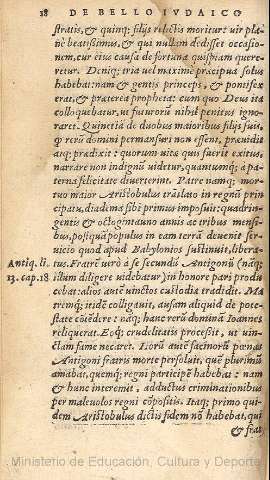 18 DE BELLO IVDAICO
stratis, & quinq; filijs relictis moritur: uir pla
nè beatissimus, & qui nullam dedisset occasio-
nem, cur eius causa de fortuna quispiam quere-
retur. Deniq; tria uel maximè præcipua solus
habebat: nam & gentis princeps, & pontifex
erat, & præterea propheta: cum quo Deus ita
colloquebatur, ut futurorũ nihil penitus igno-
raret. Quinetiã de duobus maioribus filijs suis,
quod rerũ domini permansuri non essent, præuidit
atq; prædixit: quorum uitæ qui fuerit exitus,
narrare non indignũ uidetur, quantumq; a pa-
terna felicitate diuerterint. Patre namq; mor-
tuo maior Aristobulus trãslato in regnũ prin
cipatu, diadema sibi primus imposuit: quadrin-
gentis & octogintauno annis ac tribus mensi-
bus, postquã populus in eam terrã deuenit ser-
uitio quod apud Babylonios sustinuit, libera-
Antiq. li. tus. Fratrẽ uerò a se secundũ Antigonũ (nãq;
13. cap. 18. illum diligere uidebatur) in honore pari produ
cebat: alios autẽ uinctos custodia tradidit. Ma
tremq; itidẽ colligauit, ausam aliquid de pote-
state cõtẽdere: nãq; hanc rerũ dominã Ioannes
reliquerat. Eoq; crudelitatis processit, ut uin-
ctam fame necaret. Horũ autẽ facinorũ pœnas
Antigoni fratris morte persoluit, quẽ plurimũ
amabat, quemq; regni participẽ habebat: nam
& hunc interemit, adductus criminationibus
per maleuolos regni cõpositis. Itaq; primo qui
dem Aristobulus dictis fidem nõ habebat, qui
& frat
Ministerio de Educación, Cultura y Deporte